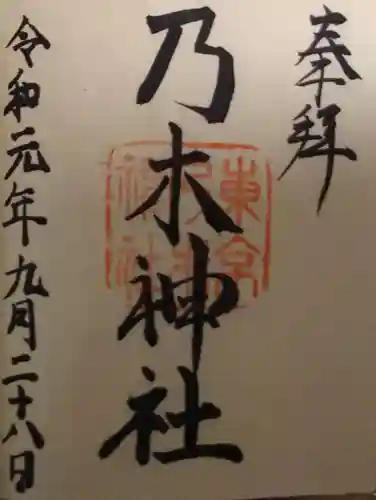 奉拝
乃木神社
東京乃木神社
令和元年九月二十八日